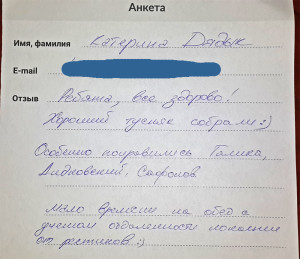 Анкета
Имя, фамилия Катерина Дядык
E-mail
Отзыв Ребята, все здорово!
Хороший тусняк собрали :)
Особенно понравились Галика,
Дидковский, Сафонов.
Мало времени на обед с
учетом отдаленности локации
от ресторанов :)